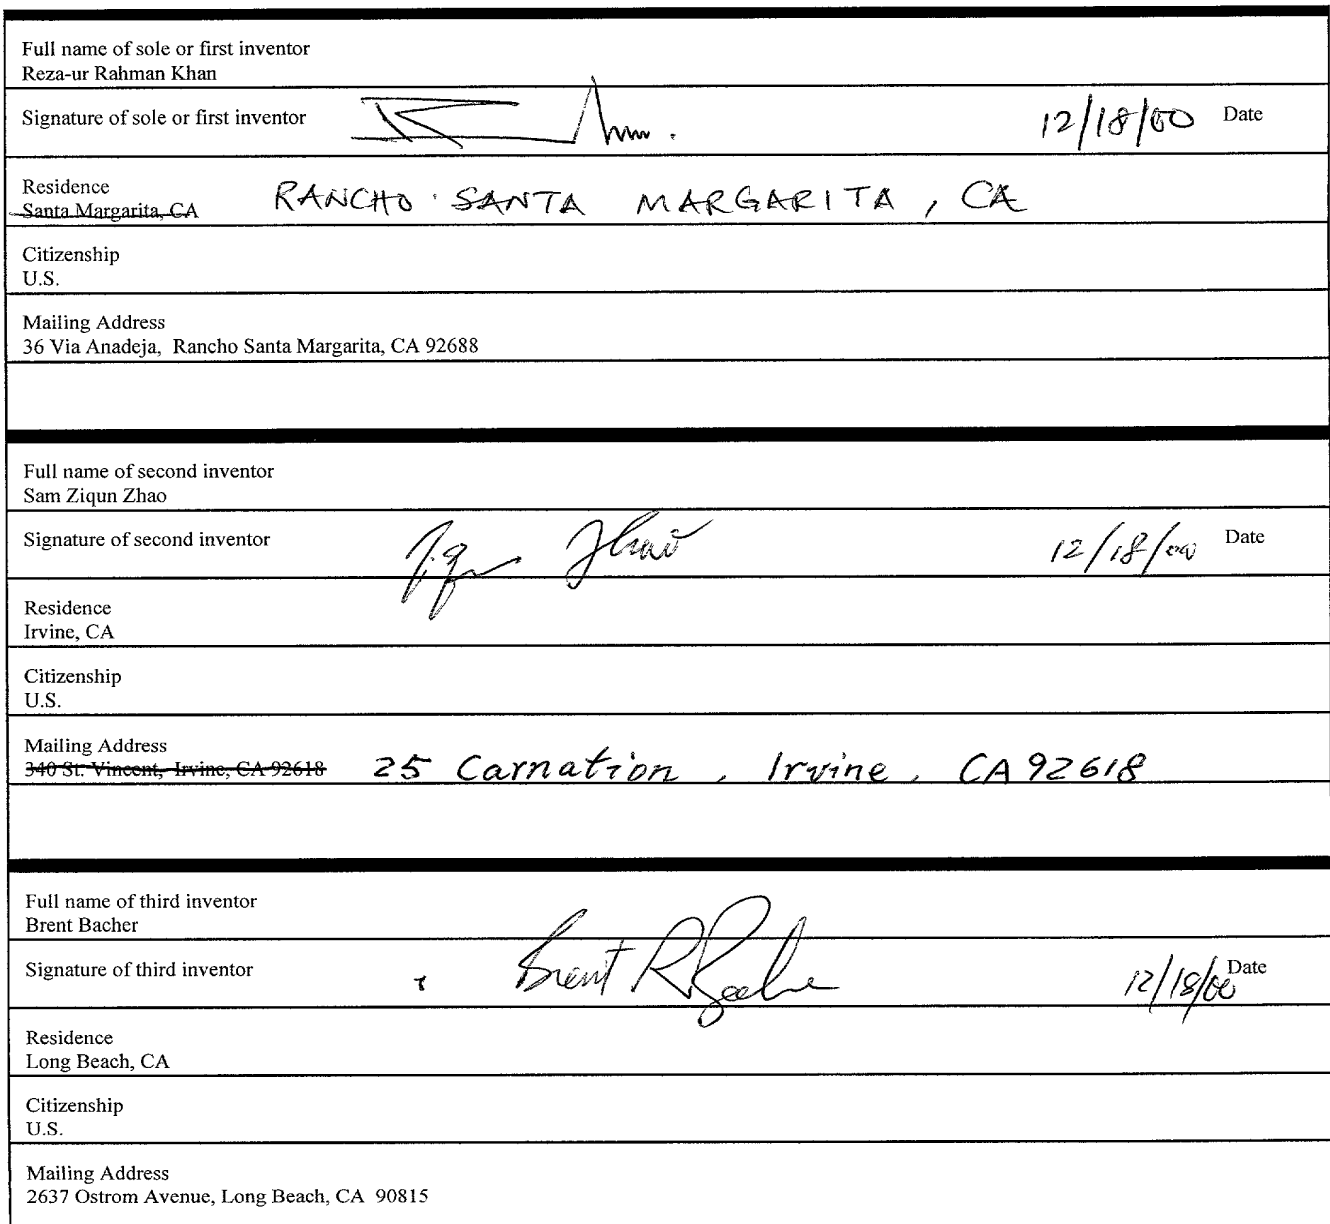 Full name of sole or first inventor
Reza-ur Rahman Khan
Signature of sole or first inventor 12/18/00 Date
Residence
Santa Margarita, CA RANCHO SANTA MARGARITA, CA
Citizenship
U.S.
Mailing Address
36 Via Anadeja, Rancho Santa Margarita, CA 92688
Full name of second inventor
Sam Ziqun Zhao
Signature of second inventor Zhao 12/18/00 Date
Residence
Irvine, CA
Citizenship
U.S.
Mailing Address
340 St. Vincent, Irvine, CA 92618 25 Carnation, Irvine, CA 92618
Full name of third inventor
Brent Bacher
Signature of third inventor Brent R Bacher 12/18/00 Date
Residence
Long Beach, CA
Citizenship
U.S.
Mailing Address
2637 Ostrom Avenue, Long Beach, CA 90815